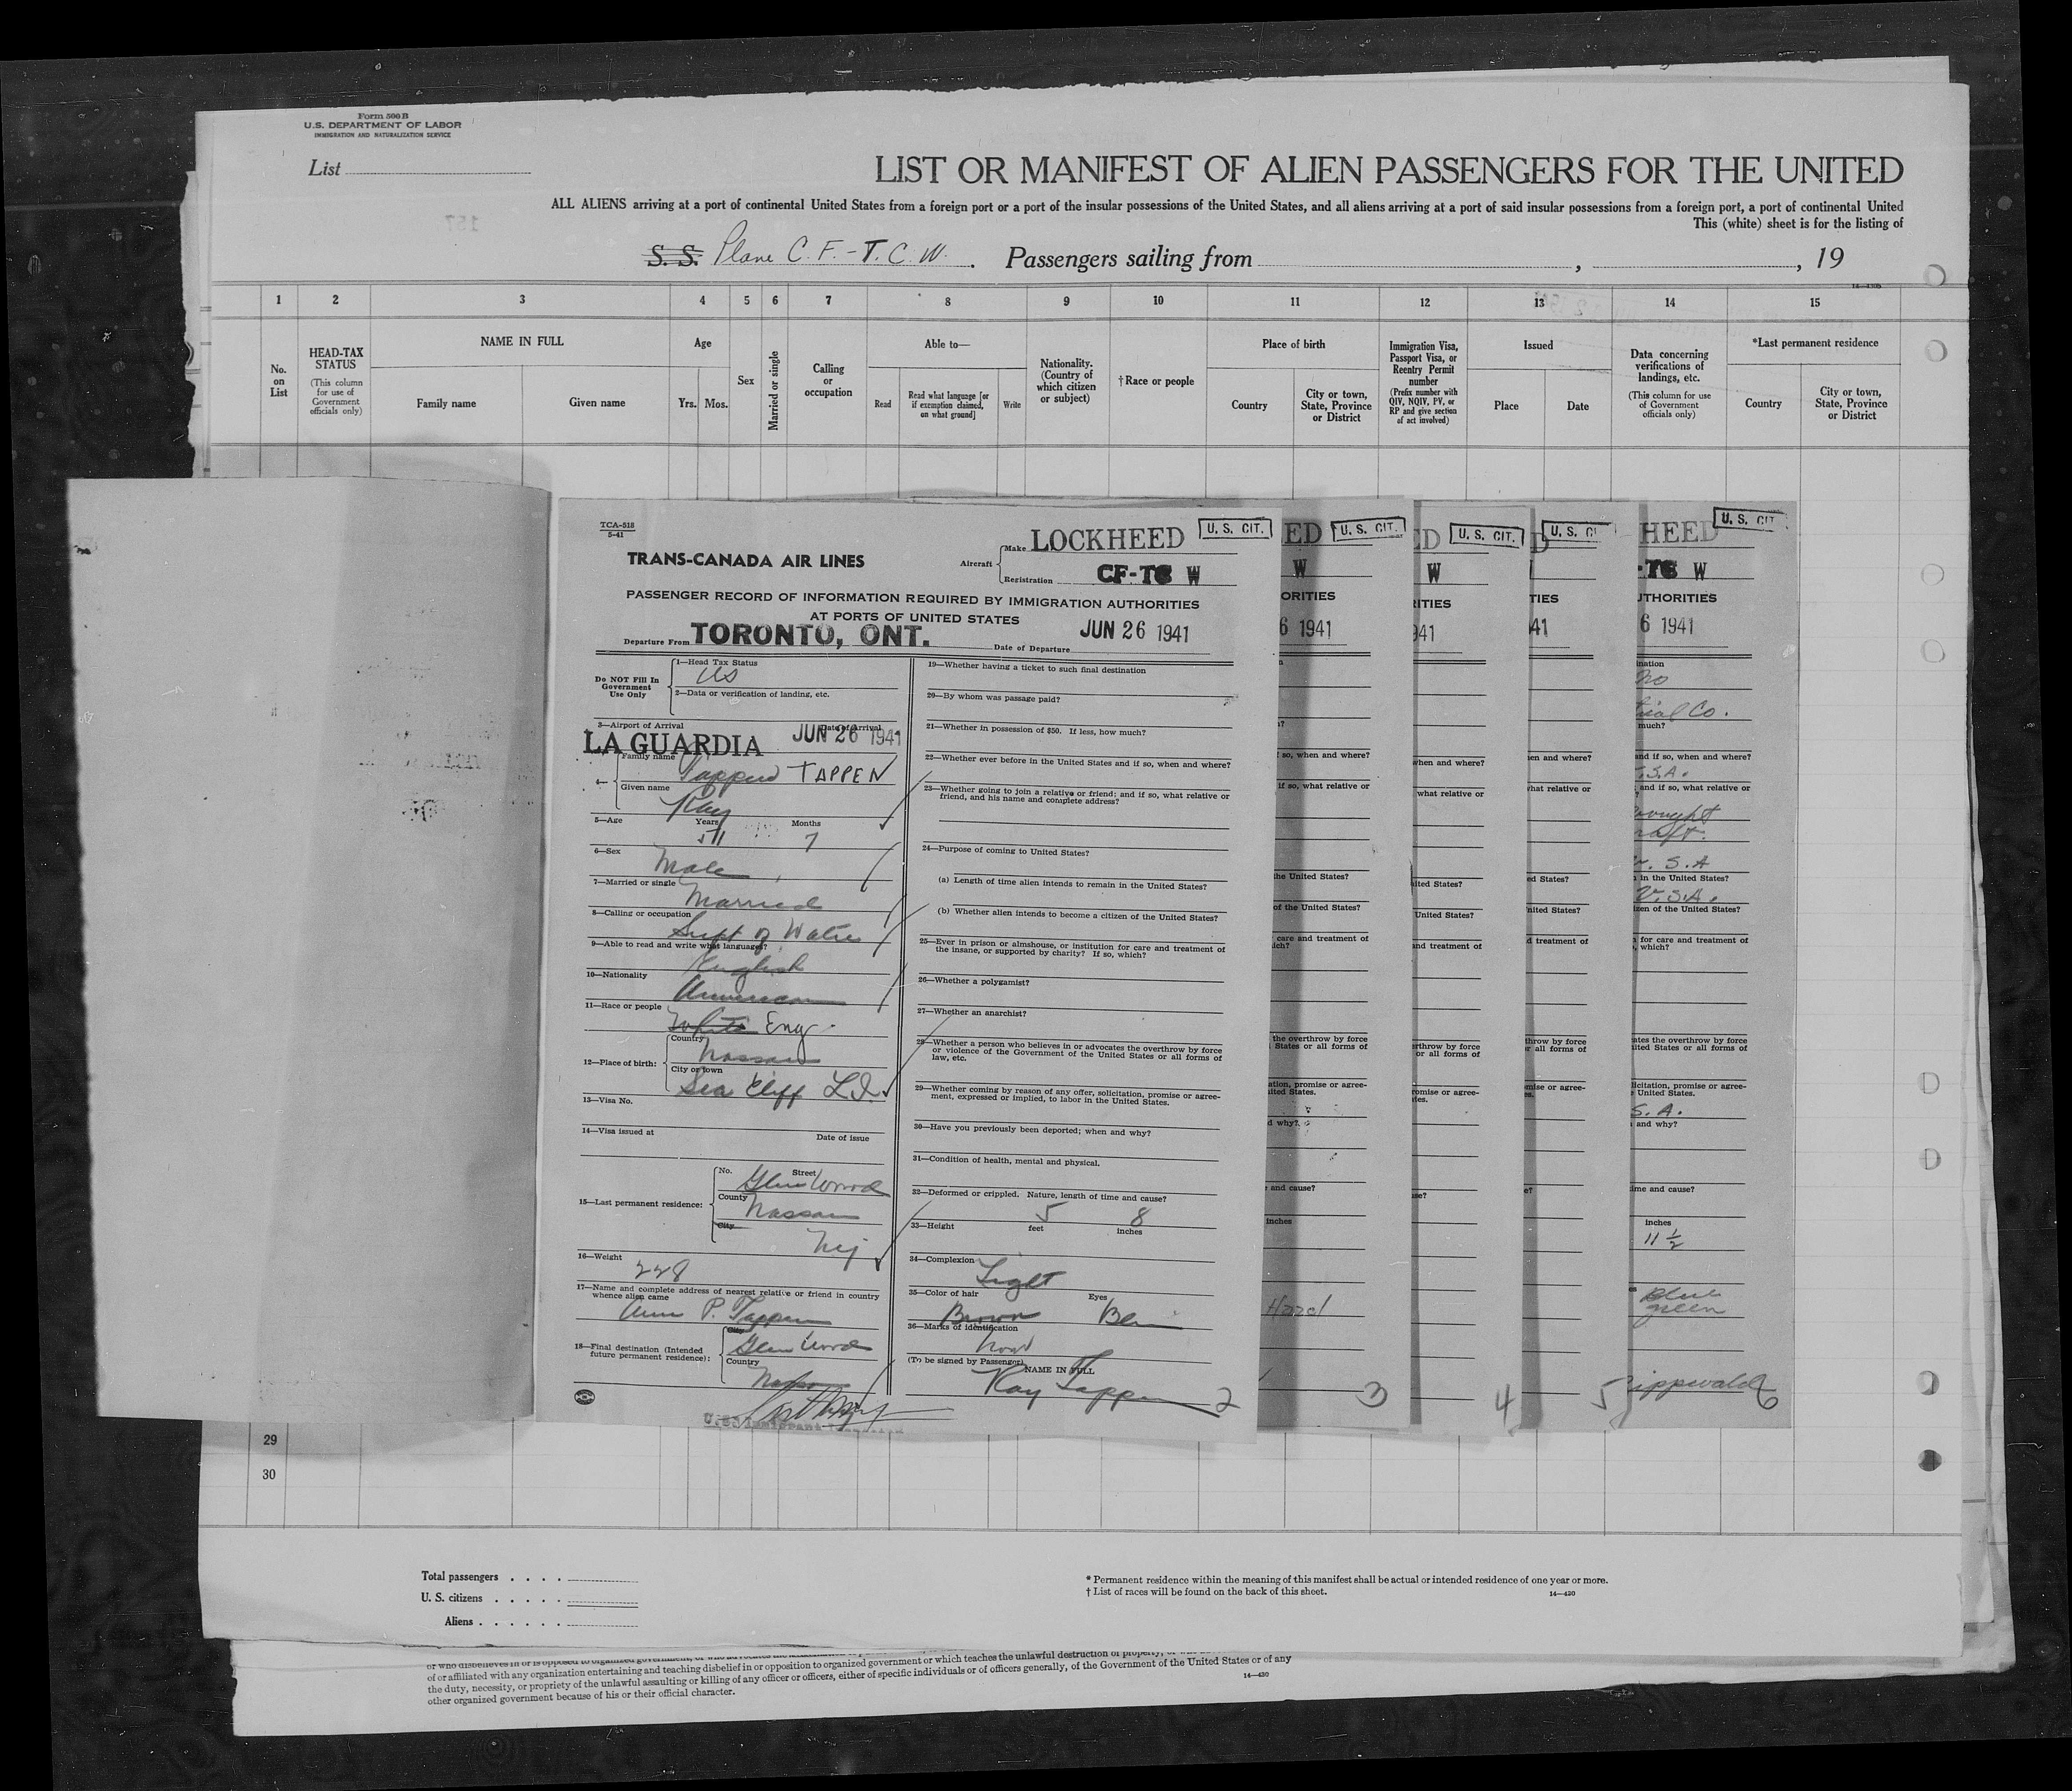 Form 500 B
U.S. DEPARTMENT OF LABOR
IMMIGRATION AND NATURALIZATION SERVICE
List
LIST OR MANIFEST OF ALIEN PASSENGERS FOR THE UNITED
ALL ALIENS arriving at a port of continental United States from a foreign port or a port of the insular possessions of the United States, and all aliens arriving at a port of said insular possessions from a foreign port, a port of continental United
This (white) sheet is for the listing of
157
S. S. Plane C. F.-T. C. W. Passengers sailing from , , 19
1 2 3 4 5 6 7 8 9 10 11 12 13 14 15
No. on List
HEAD-TAX STATUS
(This column for use of Government officials only)
NAME IN FULL
Family name Given name
Age
Yrs. Mos.
Sex
Married or single
Calling or occupation
Able to—
Read
Read what language [or if exemption claimed, on what ground]
Write
Nationality. (Country of which citizen or subject)
†Race or people
Place of birth
Country
City or town, State, Province or District
Immigration Visa, Passport Visa, or Reentry Permit number
(Prefix number with QIV, NQIV, PV, or RP and give section of act involved)
Issued
Place Date
Data concerning verifications of landings, etc.
(This column for use of Government officials only)
*Last permanent residence
Country
City or town, State, Province or District
TCA-518
5-41
TRANS-CANADA AIR LINES
Aircraft
Make LOCKHEED
U. S. CIT.
Registration CF-TC W
PASSENGER RECORD OF INFORMATION REQUIRED BY IMMIGRATION AUTHORITIES
AT PORTS OF UNITED STATES
Departure From TORONTO, ONT. Date of Departure JUN 26 1941
Do NOT Fill In Government Use Only
1—Head Tax Status
US
2—Data or verification of landing, etc.
3—Airport of Arrival Date of Arrival
LA GUARDIA JUN 26 1941
4— Family name Tappen TAPPEN
Given name
Ray
5—Age Years Months
7
6—Sex
Male
7—Married or single
Married
8—Calling or occupation
Supt of Water
9—Able to read and write what languages?
English
10—Nationality
American
11—Race or people
White Eng.
12—Place of birth:
Country
Nassau
City or town
Sea Cliff L I
13—Visa No.
14—Visa issued at Date of issue
15—Last permanent residence:
No. Street
Glenwood
County
Nassau
City
NY
16—Weight
228
17—Name and complete address of nearest relative or friend in country
whence alien came
Ann P. Tappen
18—Final destination (Intended future permanent residence):
City
Glenwood
Country
Nassau
19—Whether having a ticket to such final destination
20—By whom was passage paid?
21—Whether in possession of $50. If less, how much?
22—Whether ever before in the United States and if so, when and where?
23—Whether going to join a relative or friend; and if so, what relative or
friend, and his name and complete address?
24—Purpose of coming to United States?
(a) Length of time alien intends to remain in the United States?
(b) Whether alien intends to become a citizen of the United States?
25—Ever in prison or almshouse, or institution for care and treatment of
the insane, or supported by charity? If so, which?
26—Whether a polygamist?
27—Whether an anarchist?
28—Whether a person who believes in or advocates the overthrow by force
or violence of the Government of the United States or all forms of
law, etc.
29—Whether coming by reason of any offer, solicitation, promise or agree-
ment, expressed or implied, to labor in the United States.
30—Have you previously been deported; when and why?
31—Condition of health, mental and physical.
32—Deformed or crippled. Nature, length of time and cause?
33—Height 5 feet 8 inches
34—Complexion
Light
35—Color of hair Eyes
Brown
36—Marks of identification
(To be signed by Passenger) NAME IN FULL
Ray Tappen 2
ED U. S. CIT.
W
ORITIES
6 1941
so, when and where?
if so, what relative or
the United States?
of the United States?
care and treatment of
the overthrow by force
States or all forms of
ation, promise or agree-
ited States.
d why?
and cause?
inches
Hazel
3
D U. S. CIT.
W
ITIES
941
when and where?
what relative or
ited States?
United States?
and treatment of
rthrow by force
or all forms of
romise or agree-
tes.
se?
4
D U. S. CI
TIES
41
en and where?
hat relative or
ed States?
nited States?
d treatment of
hrow by force
r all forms of
mise or agree-
es.
e?
5
HEED U. S. CIT.
-TC W
UTHORITIES
6 1941
ination
no
Co.
much?
and if so, when and where?
.S.A.
and if so, what relative or
ought
raft.
S.A
in the United States?
U.S.A.
izen of the United States?
for care and treatment of
, which?
ates the overthrow by force
ited States or all forms of
licitation, promise or agree-
United States.
S. A.
and why?
ime and cause?
inches
11 ½
Blue
green
ippwald
6
29
30
Total passengers . . . .
U. S. citizens . . . . .
Aliens . . . . . .
* Permanent residence within the meaning of this manifest shall be actual or intended residence of one year or more.
† List of races will be found on the back of this sheet.
14—420
of or affiliated with any organization entertaining and teaching disbelief in or opposition to organized government or which teaches the unlawful destruction of property,
the duty, necessity, or propriety of the unlawful assaulting or killing of any officer or officers, either of specific individuals or of officers generally, of the Government of the United States or of any
other organized government because of his or their official character.
14—420